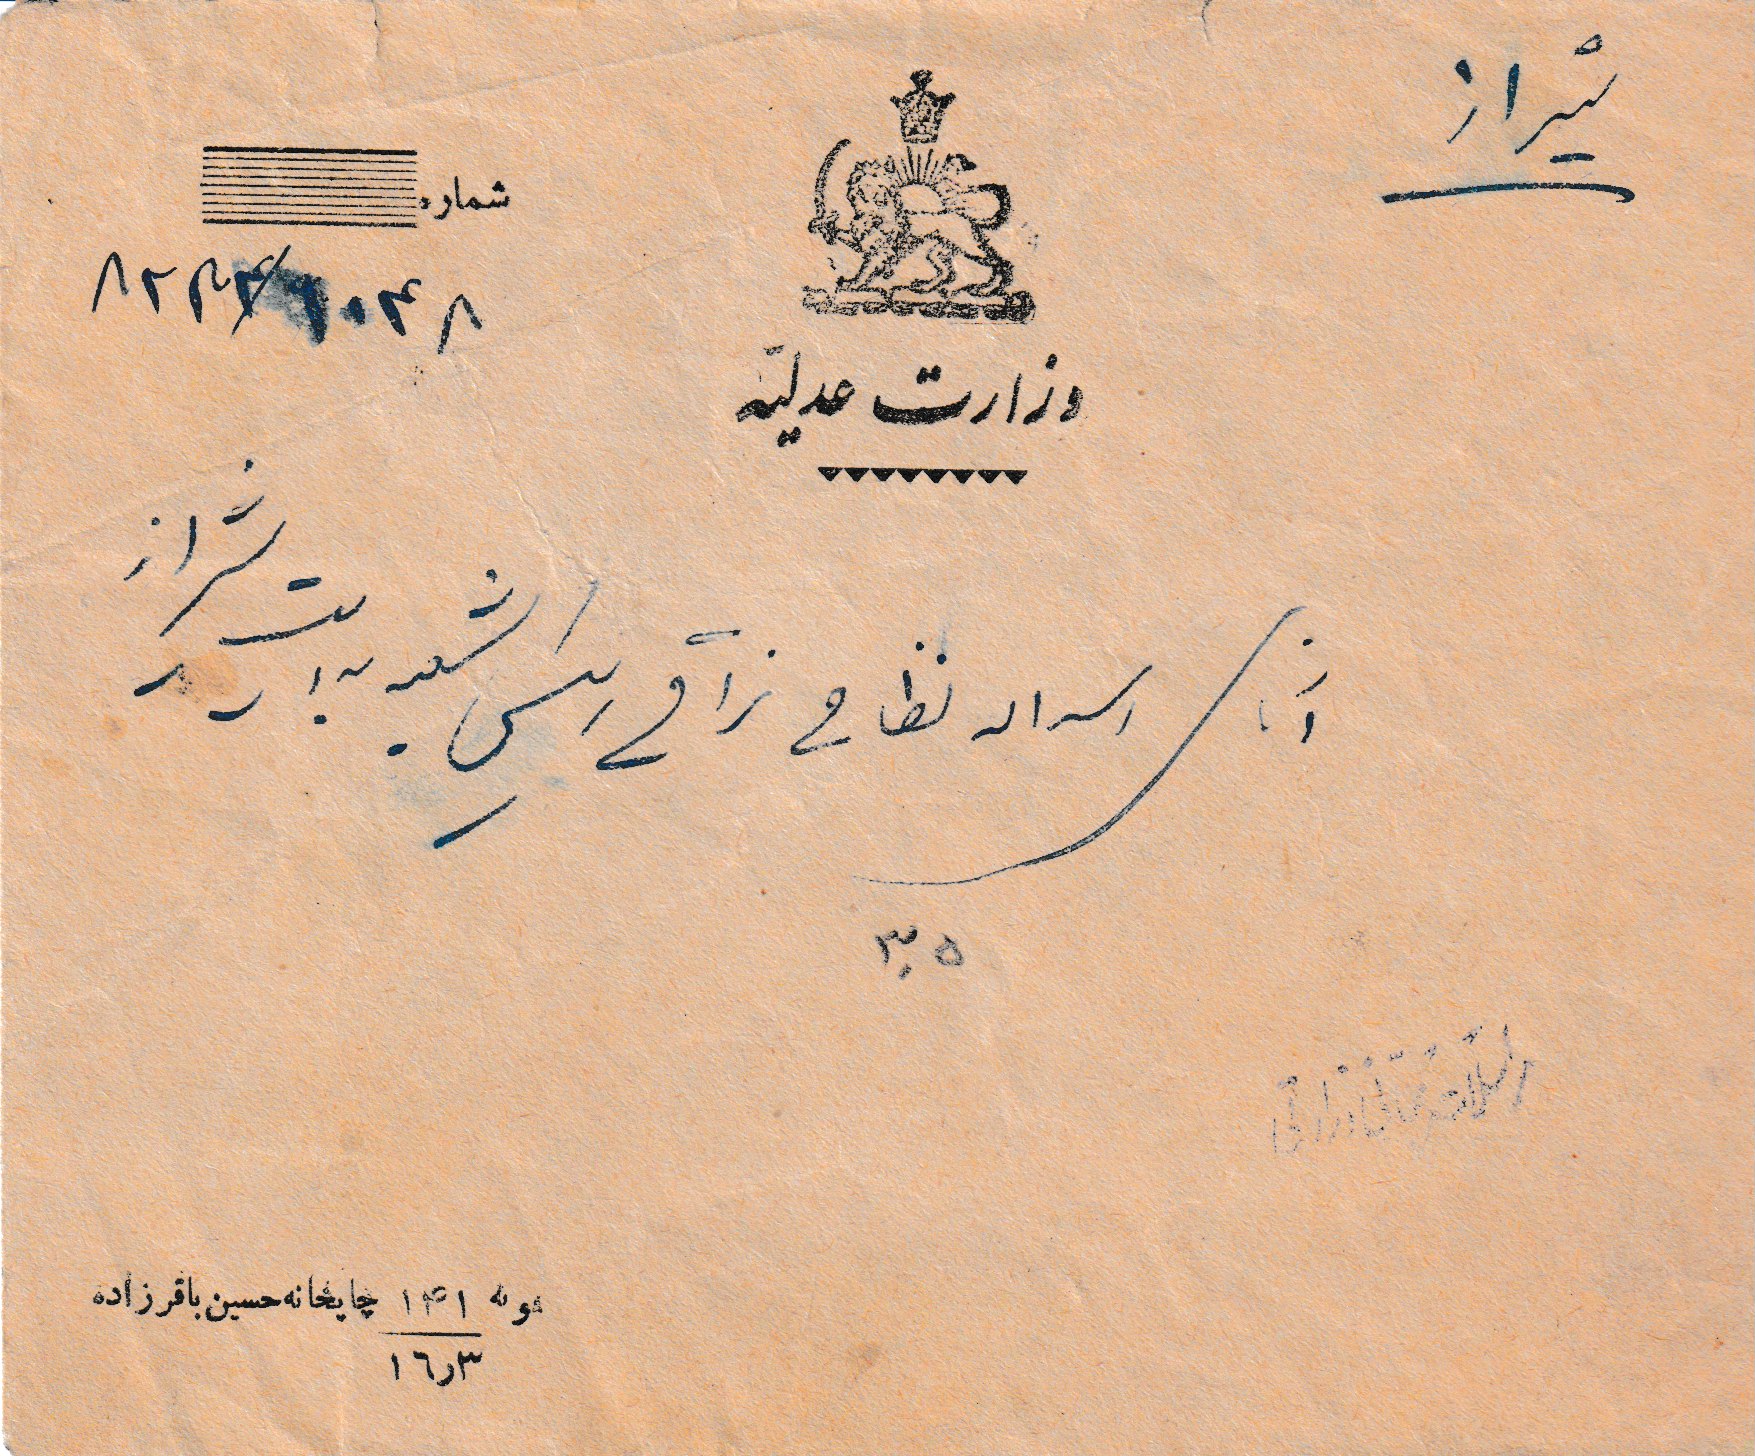 شیراز
شماره
۸۲۳۴/۲۰۴۸
وزارت عدلیّه
آقای اسداله نظامی نراقی رئیس شعبه بدایت شیراز
۳۰۵
نمونه ۱۴۱ چاپخانه حسین باقرزاده
۱٦٫۳